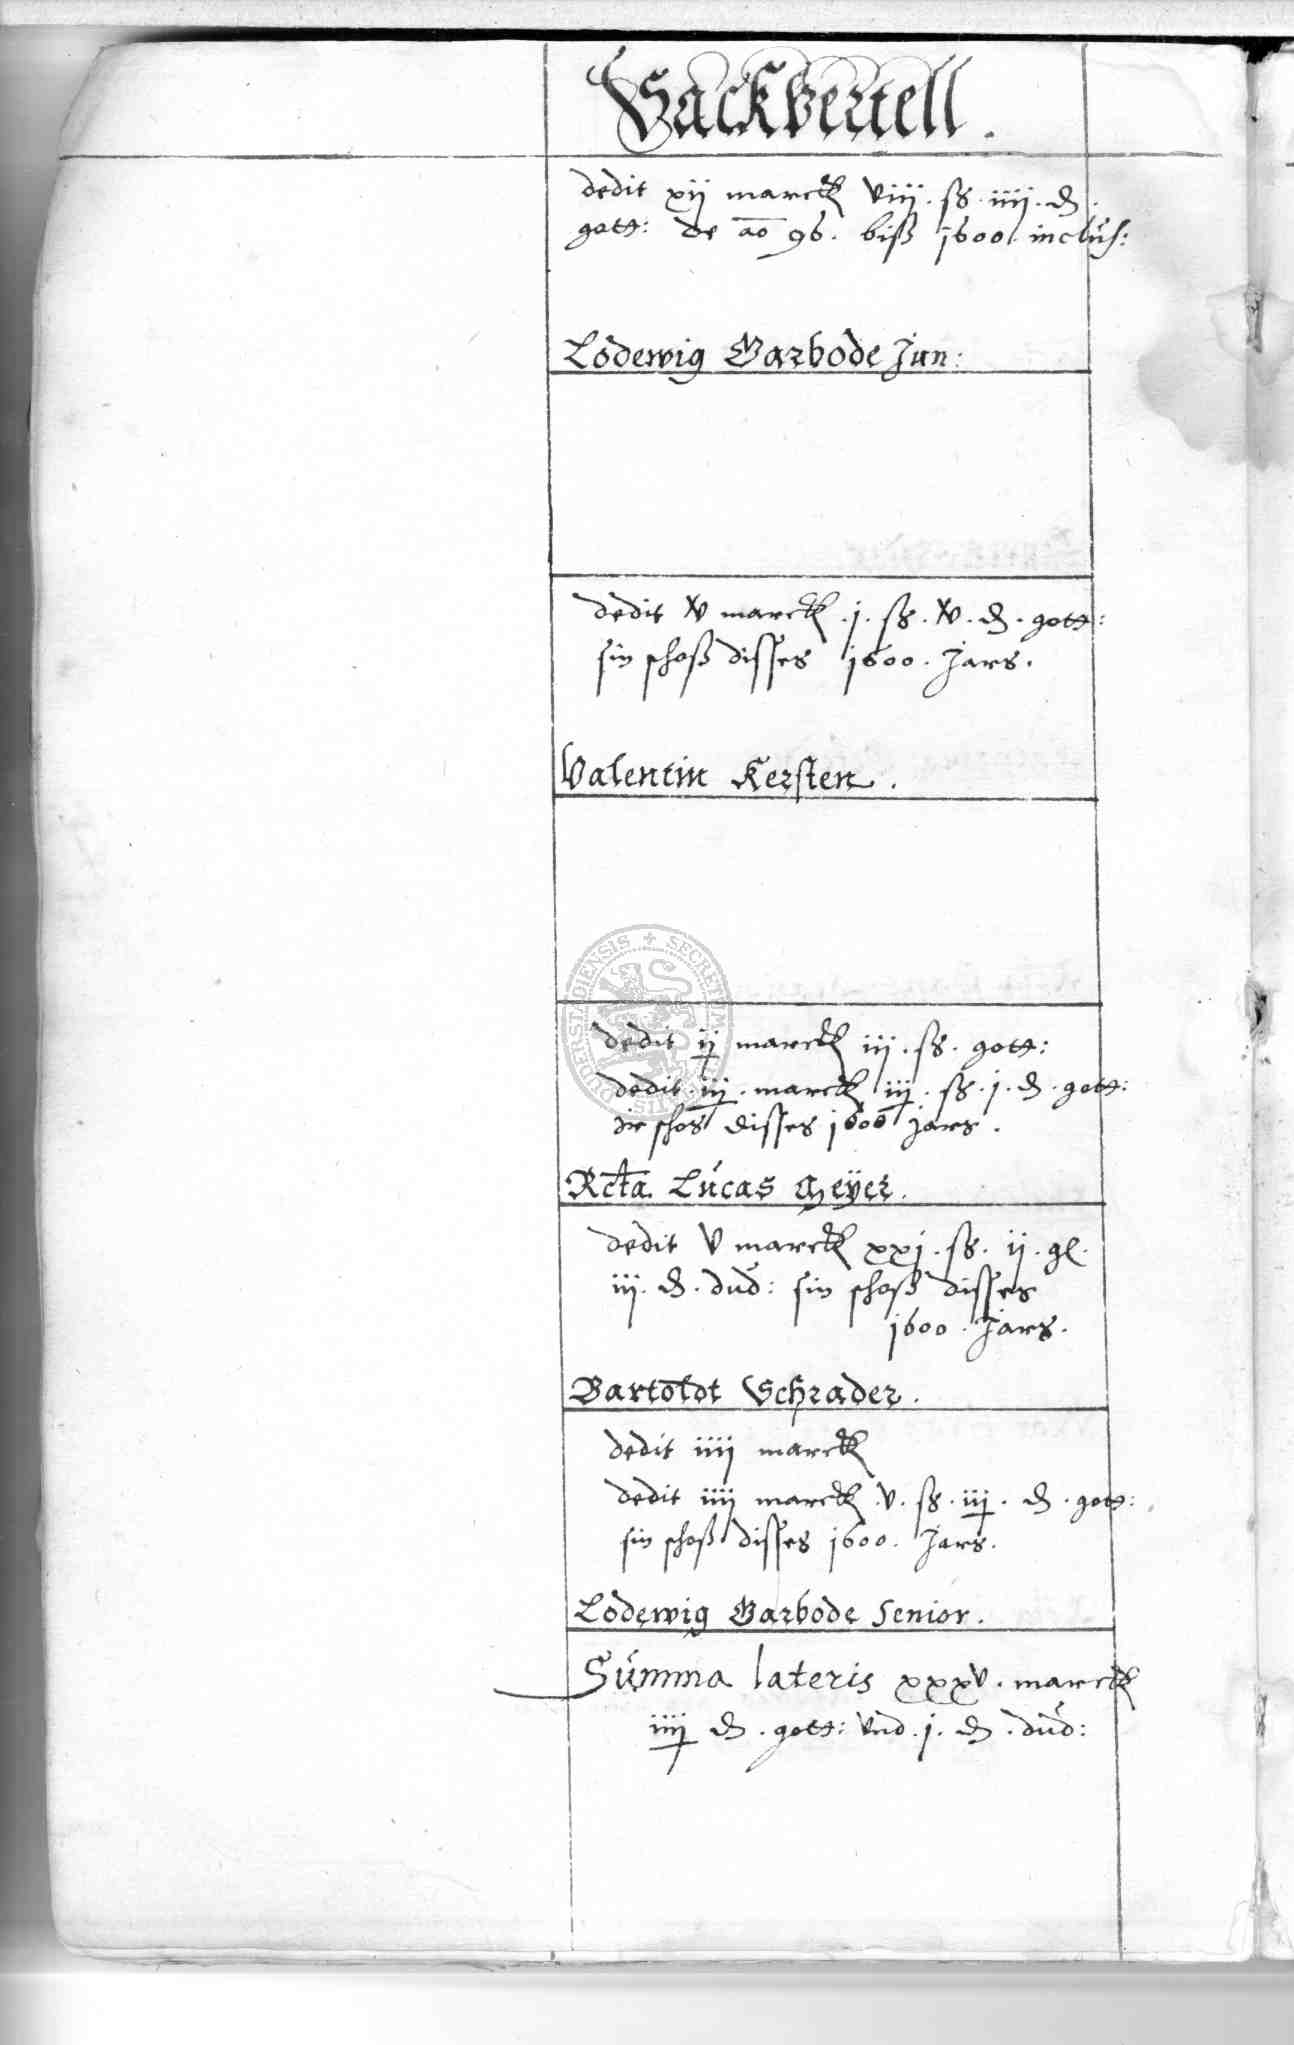 Sackvertell.
dedit xij marck viij. ß. iiij. d.
gott: de ao 96. biß 1600. inclus:
Lodewig Garbode Jun:
dedit v marck .j. ß. v. d. gott:
sin schoß disses 1600. Jars.
Valentin Kersten.
dedit ij marck iij. ß. gott:
dedit. iij. marck iij. ß. j. d. gott:
schos disses 1600 Jars.
Rcta. Lucas Meyer.
dedit v marck xxj. ß. ij. gl.
iij. d. dud: sin schoß disses
1600. Jars.
Bartoldt Schrader.
dedit iiij marck
dedit iiij marck .v. ß. iij. d. gott:
sin schoß disses 1600. Jars.
Lodewig Garbode Senior.
Summa lateris xxxv. marck
iiij d. gott: vnd .j. d. dud:
SECRETUM
DUDERSTADIENSIS